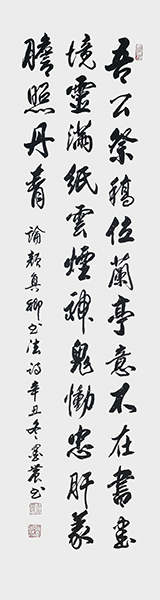 吾公祭稿位蘭亭意不在書書
境靈滿紙雲煙神鬼慟忠肝義
膽照丹青
論顏真卿書法詩辛丑冬墨農書